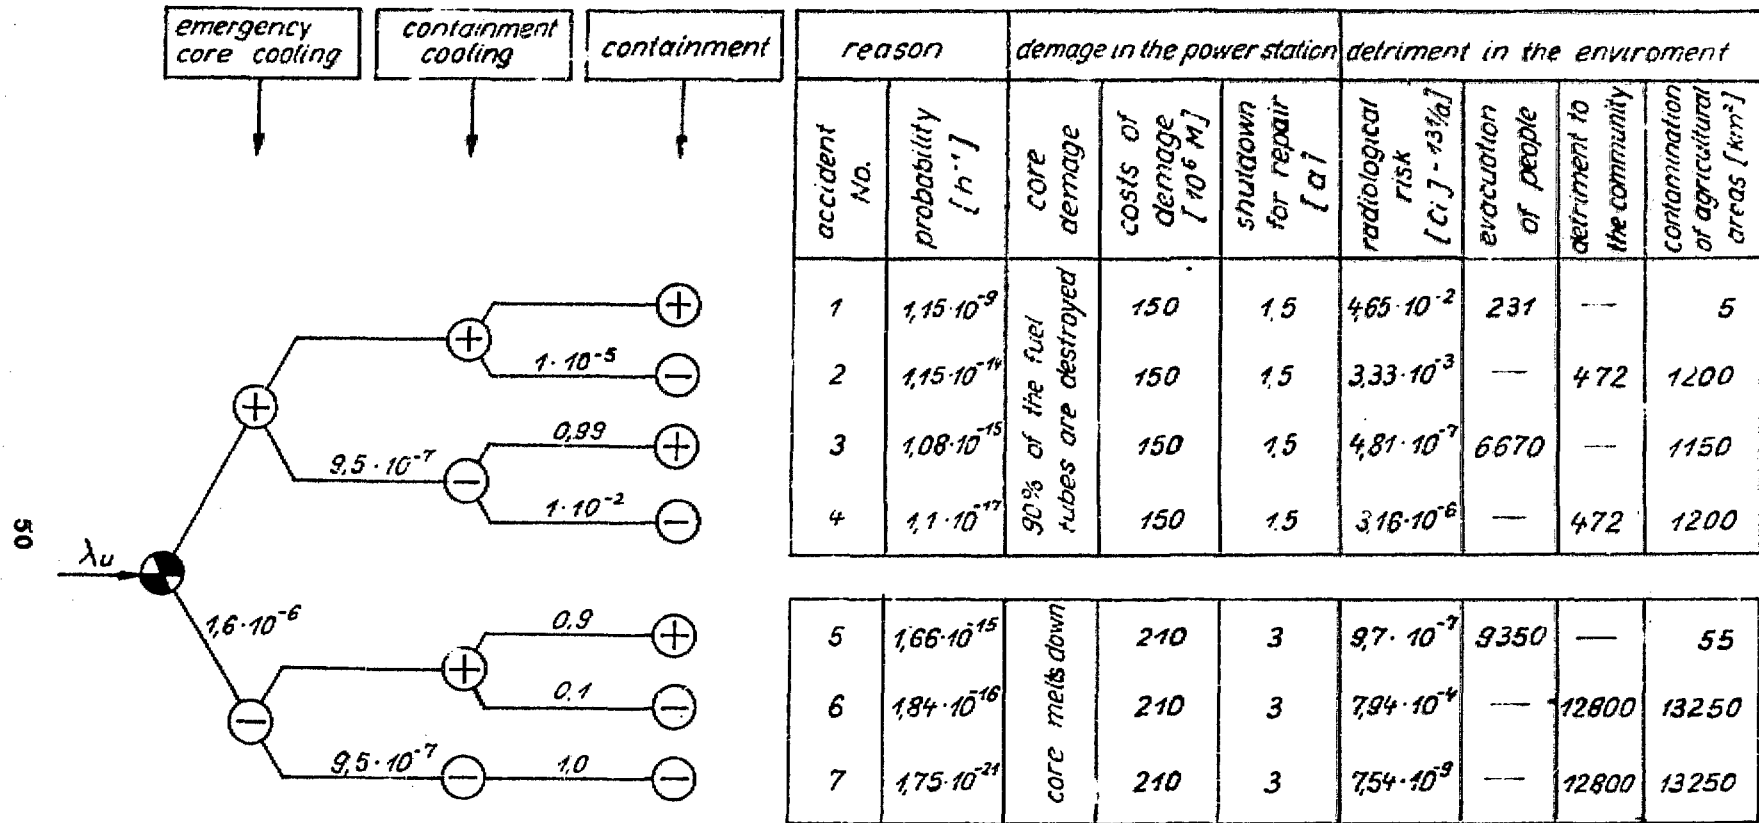 emergency
core cooling
containment
cooling
containment
λu
1,6·10⁻⁶
9,5·10⁻⁷
1·10⁻⁵
0,99
1·10⁻²
0,9
0,1
9,5·10⁻⁷
1,0
50
reason
demage in the power station
detriment in the enviroment
accident
No.
probability
[h⁻¹]
core
demage
costs of
demage
[10⁶ M]
shutdown
for repair
[a]
radiological
risk
evacuation
of people
detriment to
the community
contamination
of agricultural
areas [km²]
90% of the fuel
tubes are destroyed
1 1,15·10⁻⁹ 150 1,5 4,65·10⁻² 231 — 5
2 1,15·10⁻¹⁴ 150 1,5 3,33·10⁻³ — 472 1200
3 1,08·10⁻¹⁵ 150 1,5 4,81·10⁻⁷ 6670 — 1150
4 1,1·10⁻¹⁷ 150 1.5 3,16·10⁻⁶ — 472 1200
core melts down
5 1,66·10⁻¹⁵ 210 3 9,7·10⁻⁷ 9350 — 55
6 1,84·10⁻¹⁶ 210 3 7,94·10⁻⁴ — 12800 13250
7 1,75·10⁻²¹ 210 3 7,54·10⁻⁹ — 12800 13250